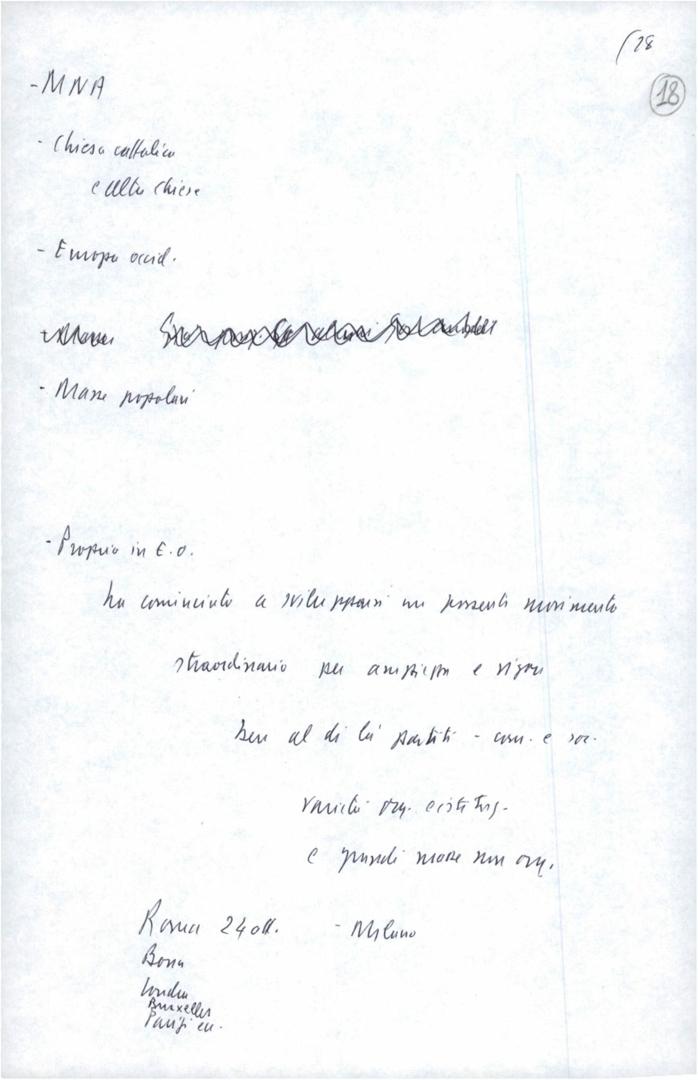 (28
18
- MNA
- Chiesa cattolica
e altre chiese
- Europa occid.
- Masse popolari
- Proprio in E.O.
ha cominciato a svilupparsi un possente movimento
straordinario per ampiezza e vigore
ben al di là partiti - com. e soc.
varietà org. e istituz.
e grandi masse non org.
Roma 24 ott. - Milano
Bonn
Londra
Bruxelles
Parigi